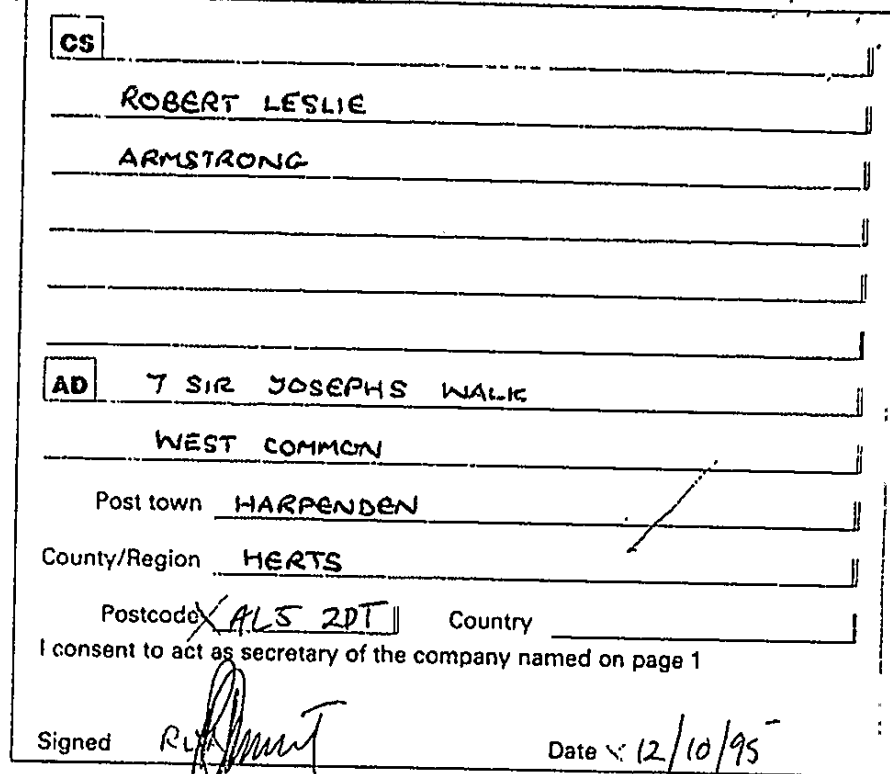 CS
ROBERT LESLIE
ARMSTRONG
AD 7 SIR JOSEPHS WALK
WEST COMMON
Post town HARPENDEN
County/Region HERTS
Postcode AL5 2DT Country
I consent to act as secretary of the company named on page 1
Signed Date 12/10/95